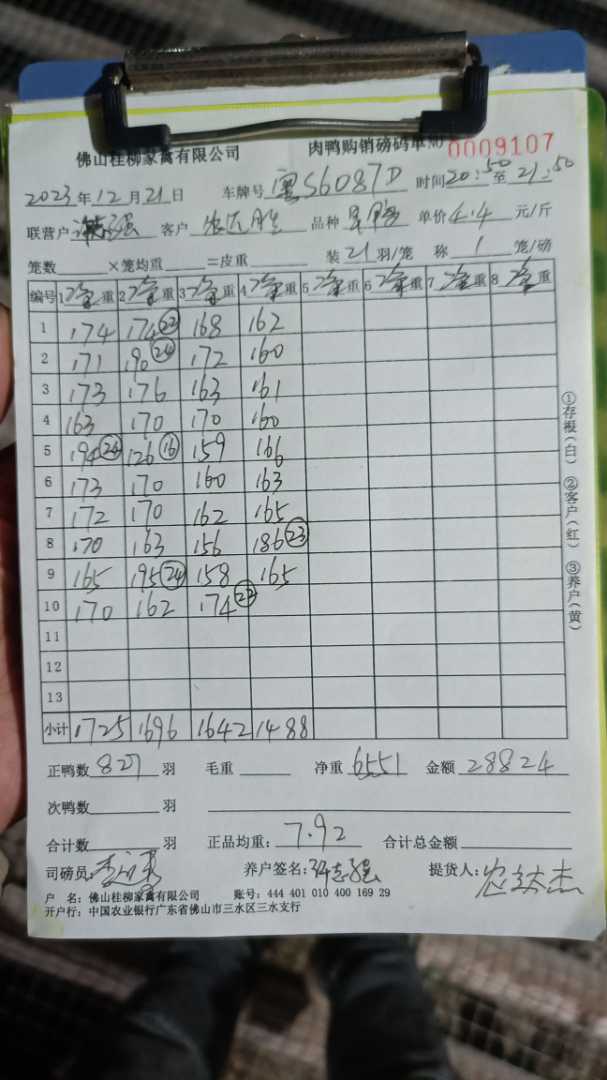 佛山桂柳家禽有限公司 肉鸭购销磅码单 NO 0009107
2023年12月21日 车牌号 粤S6087D 时间20:50至21:50
联营户 客户 品种 单价4.4元/斤
笼数 ×笼均重 =皮重 装21羽/笼 称1笼/磅
编号 1 重 2 重 3 重 4 重 5 重 6 重 7 重 8 重
1 174 174(22) 168 162
2 171 190(24) 172 160
3 173 176 163 161
4 163 170 170 160
5 194(24) 126(16) 159 166
6 173 170 160 163
7 172 170 162 165
8 170 163 156 186(23)
9 165 195(24) 158 165
10 170 162 174(23)
11
12
13
小计 1725 1696 1642 1488
正鸭数 827 羽 毛重 净重 6551 金额 28824
次鸭数 羽
合计数 羽 正品均重: 7.92 合计总金额
司磅员: 养户签名: 提货人:
户 名: 佛山桂柳家禽有限公司 账号: 444 401 010 400 169 29
开户行: 中国农业银行广东省佛山市三水区三水支行
①存根(白) ②客户(红) ③养户(黄)